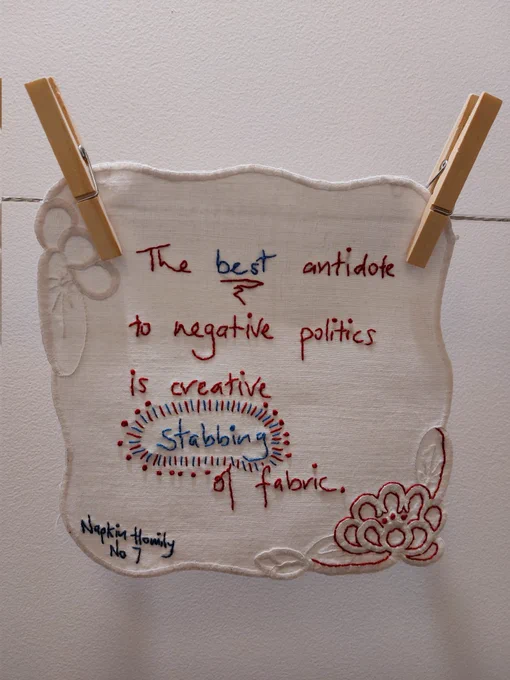 The best antidote
to negative politics
is creative
stabbing
of fabric.
Napkin Homily
No 7